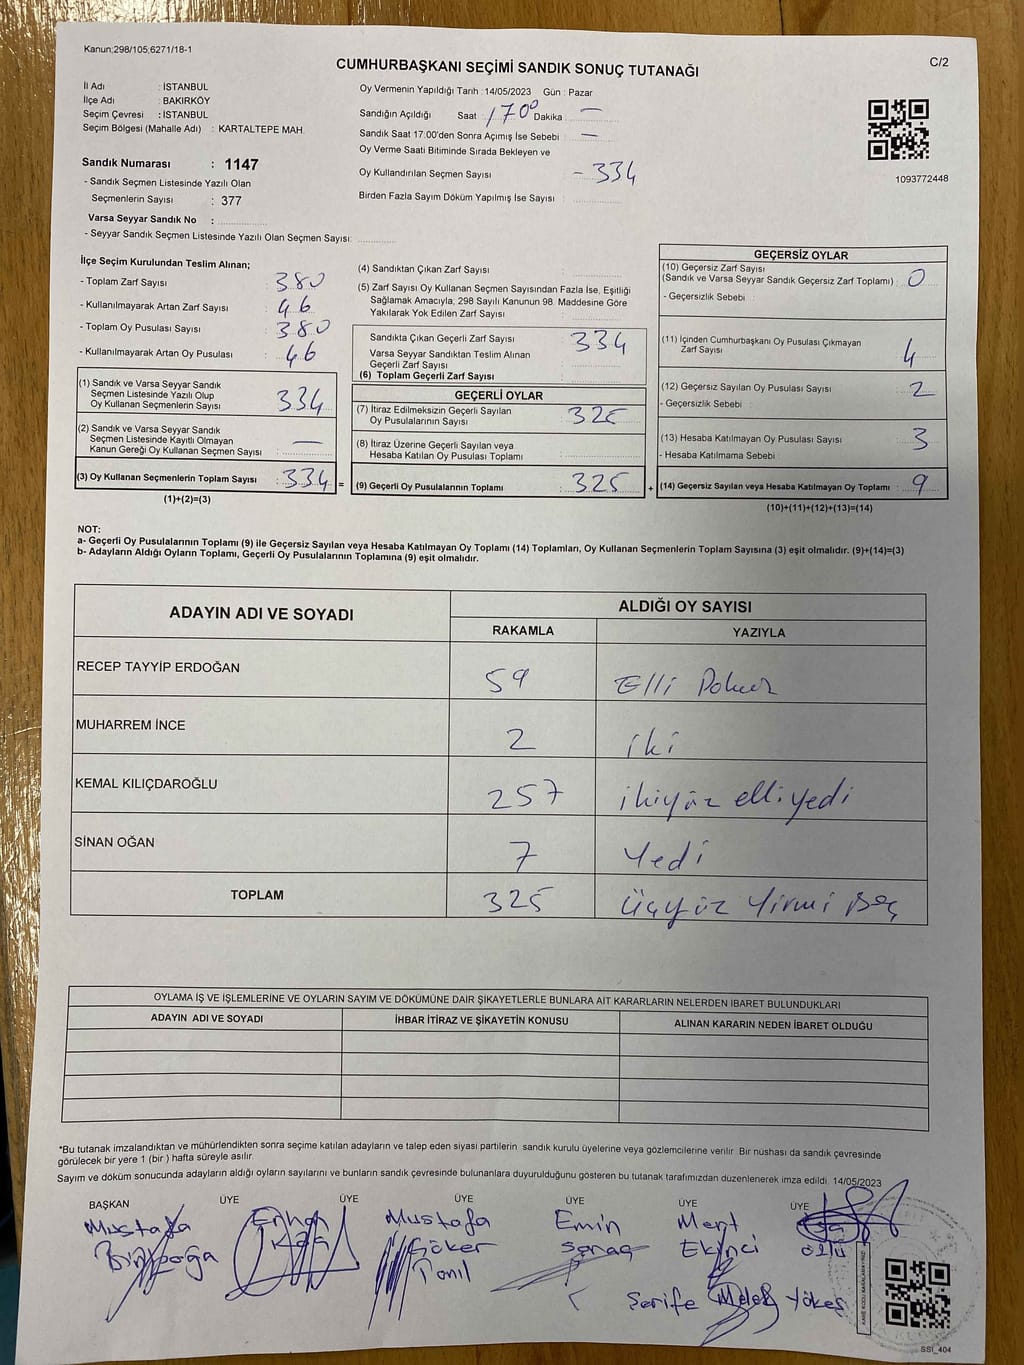 Kanun;298/105;6271/18-1
C/2
CUMHURBAŞKANI SEÇİMİ SANDIK SONUÇ TUTANAĞI
İl Adı : İSTANBUL
İlçe Adı : BAKIRKÖY
Seçim Çevresi : İSTANBUL
Seçim Bölgesi (Mahalle Adı) : KARTALTEPE MAH.
Sandık Numarası : 1147
- Sandık Seçmen Listesinde Yazılı Olan
Seçmenlerin Sayısı : 377
Varsa Seyyar Sandık No :
- Seyyar Sandık Seçmen Listesinde Yazılı Olan Seçmen Sayısı:
Oy Vermenin Yapıldığı Tarih :14/05/2023 Gün : Pazar
Sandığın Açıldığı Saat 1700 Dakika : —
Sandık Saat 17:00'den Sonra Açılmış İse Sebebi : —
Oy Verme Saati Bitiminde Sırada Bekleyen ve
Oy Kullandırılan Seçmen Sayısı - 334
Birden Fazla Sayım Döküm Yapılmış İse Sayısı :
1093772448
İlçe Seçim Kurulundan Teslim Alınan;
- Toplam Zarf Sayısı : 380
- Kullanılmayarak Artan Zarf Sayısı : 46
- Toplam Oy Pusulası Sayısı : 380
- Kullanılmayarak Artan Oy Pusulası : 46
(1) Sandık ve Varsa Seyyar Sandık
Seçmen Listesinde Yazılı Olup
Oy Kullanan Seçmenlerin Sayısı : 334
(2) Sandık ve Varsa Seyyar Sandık
Seçmen Listesinde Kayıtlı Olmayan
Kanun Gereği Oy Kullanan Seçmen Sayısı : —
(3) Oy Kullanan Seçmenlerin Toplam Sayısı : 334 =
(1)+(2)=(3)
(4) Sandıktan Çıkan Zarf Sayısı :
(5) Zarf Sayısı Oy Kullanan Seçmen Sayısından Fazla İse, Eşitliği
Sağlamak Amacıyla, 298 Sayılı Kanunun 98. Maddesine Göre
Yakılarak Yok Edilen Zarf Sayısı :
Sandıkta Çıkan Geçerli Zarf Sayısı : 334
Varsa Seyyar Sandıktan Teslim Alınan
Geçerli Zarf Sayısı :
(6) Toplam Geçerli Zarf Sayısı :
GEÇERLİ OYLAR
(7) İtiraz Edilmeksizin Geçerli Sayılan
Oy Pusulalarının Sayısı : 325
(8) İtiraz Üzerine Geçerli Sayılan veya
Hesaba Katılan Oy Pusulası Toplamı :
(9) Geçerli Oy Pusulalarının Toplamı : 325 +
GEÇERSİZ OYLAR
(10) Geçersiz Zarf Sayısı
(Sandık ve Varsa Seyyar Sandık Geçersiz Zarf Toplamı) : 0
- Geçersizlik Sebebi :
(11) İçinden Cumhurbaşkanı Oy Pusulası Çıkmayan
Zarf Sayısı : 4
(12) Geçersiz Sayılan Oy Pusulası Sayısı : 2
- Geçersizlik Sebebi :
(13) Hesaba Katılmayan Oy Pusulası Sayısı : 3
- Hesaba Katılmama Sebebi :
(14) Geçersiz Sayılan veya Hesaba Katılmayan Oy Toplamı : 9
(10)+(11)+(12)+(13)=(14)
NOT:
a- Geçerli Oy Pusulalarının Toplamı (9) ile Geçersiz Sayılan veya Hesaba Katılmayan Oy Toplamı (14) Toplamları, Oy Kullanan Seçmenlerin Toplam Sayısına (3) eşit olmalıdır. (9)+(14)=(3)
b- Adayların Aldığı Oyların Toplamı, Geçerli Oy Pusulalarının Toplamına (9) eşit olmalıdır.
ADAYIN ADI VE SOYADI
ALDIĞI OY SAYISI
RAKAMLA YAZIYLA
RECEP TAYYİP ERDOĞAN 59 Elli Dokuz
MUHARREM İNCE 2 iki
KEMAL KILIÇDAROĞLU 257 ikiyüz elliyedi
SİNAN OĞAN 7 Yedi
TOPLAM 325 Üçyüz Yirmi Beş
OYLAMA İŞ VE İŞLEMLERİNE VE OYLARIN SAYIM VE DÖKÜMÜNE DAİR ŞİKAYETLERLE BUNLARA AİT KARARLARIN NELERDEN İBARET BULUNDUKLARI
ADAYIN ADI VE SOYADI İHBAR İTİRAZ VE ŞİKAYETİN KONUSU ALINAN KARARIN NEDEN İBARET OLDUĞU
*Bu tutanak imzalandıktan ve mühürlendikten sonra seçime katılan adayların ve talep eden siyasi partilerin sandık kurulu üyelerine veya gözlemcilerine verilir. Bir nüshası da sandık çevresinde
görülecek bir yere 1 (bir ) hafta süreyle asılır.
Sayım ve döküm sonucunda adayların aldığı oyların sayılarını ve bunların sandık çevresinde bulunanlara duyurulduğunu gösteren bu tutanak tarafımızdan düzenlenerek imza edildi. 14/05/2023
BAŞKAN ÜYE ÜYE ÜYE ÜYE ÜYE ÜYE
Mustafa Erhan Mustafa Emin Mert
Kaya Göker Ekinci
Tanıl
Şerife Melek Yökeş
SSI_404